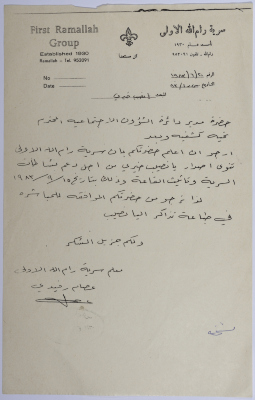 First Ramallah
Group
Established 1930
Ramallah - Tel. 952091
سرية رام الله الاولى
تأسست عام ١٩٣٠
رام الله - تلفون ٩٥٢٠٩١
No
Date
الرقم
التاريخ
حضرة مدير دائرة الشؤون الاجتماعية المحترم
تحية كشفية وبعد
ارجو ان اعلم حضرتكم بان سرية رام الله الاولى
تنوي اصدار يانصيب خيري من اجل دعم نشاطات
السرية وتأثيث القاعة وذلك بتاريخ
لذا نرجو من حضرتكم الموافقة للمباشرة
في طباعة تذاكر اليانصيب
ولكم جزيل الشكر
سرية رام الله الاولى